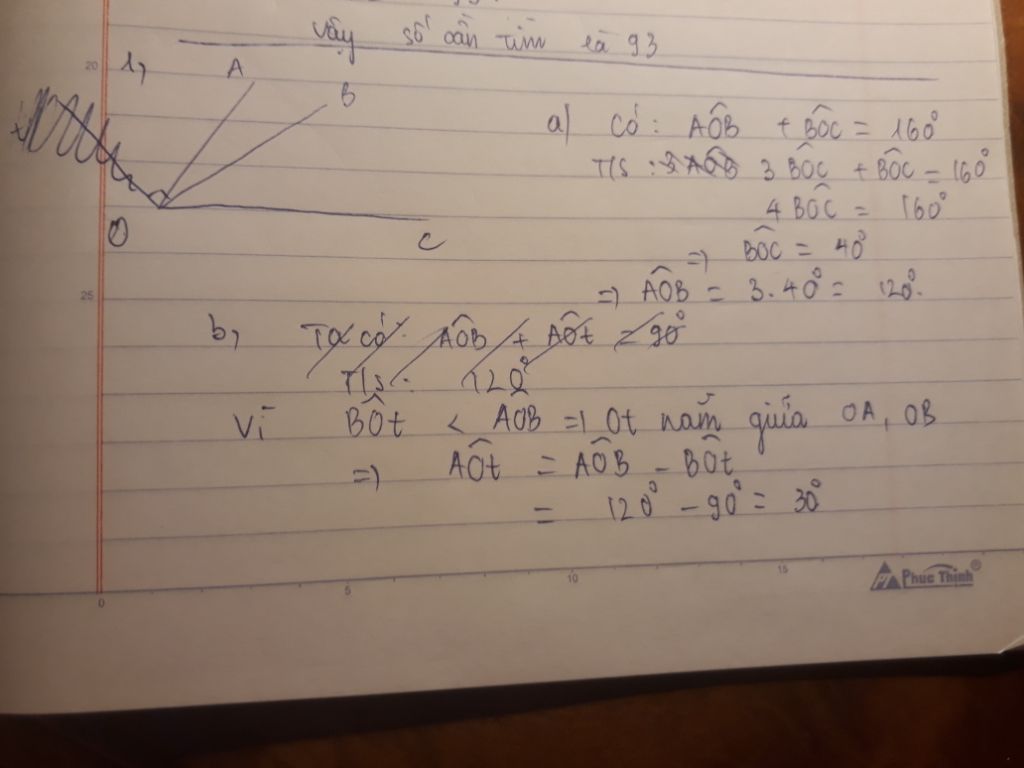 Vậy số cần tìm là 93
20
1,
A
B
O
C
a) Có: AÔB + BÔC = 160°
T/S: 3 AÔB 3 BÔC + BÔC = 160°
4 BÔC = 160°
=> BÔC = 40°
=> AÔB = 3.40° = 120°.
25
b, Ta có: AÔB + AÔt = 90°
T/S: 120°
Vì BÔt < AÔB => Ot nằm giữa OA, OB
=> AÔt = AÔB - BÔt
= 120° - 90° = 30°
0 5 10 15
Phuc Thinh®